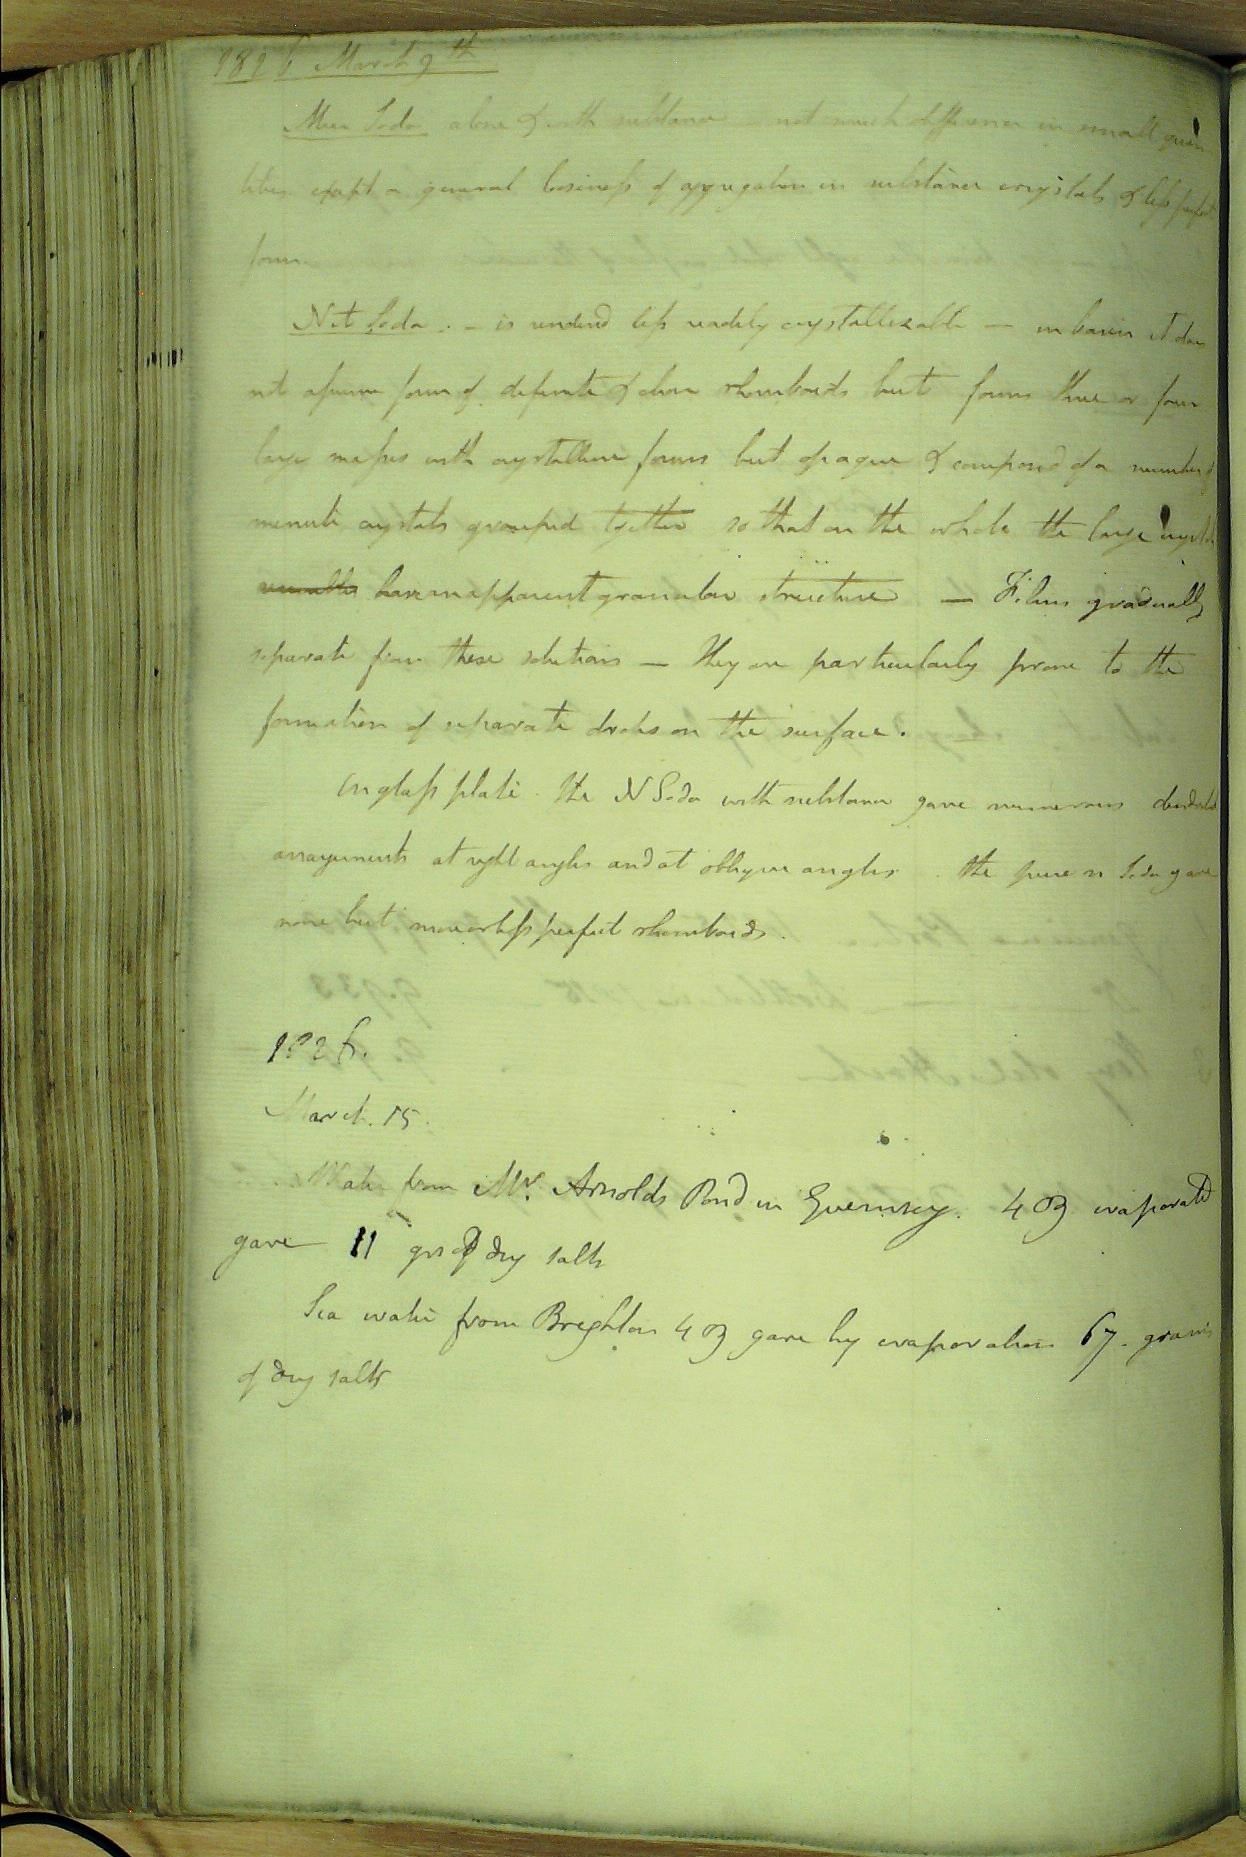 1826 March 9th
Mur Soda alone & with substance not much difference in small quan
tities except a general looseness of aggregation in substance crystals & less perfect
form
Nit Soda. - is rendered less readily crystallizable — in basin it does
not assume form of definite & clear rhomboids but forms three or four
large masses with crystalline forms but opaque & composed of a number of
minute crystals grouped together so that on the whole the large crystals
have an apparent granular structure — Films gradually
separate from these solutions — they are particularly prone to the
formation of separate discs on the surface.
On glass plate. the N Soda with substance gave numerous dendritic
arrangements at right angles and at oblique angles. the pure n Soda gave
none but more or less perfect rhomboids.
1826.
March. 15.
Water from Mr. Arnolds Pond in Guernsey. 4 oz evaporated
gave 11 grs of dry salts
Sea water from Brighton 4 oz gave by evaporation 67. grains
of dry salts